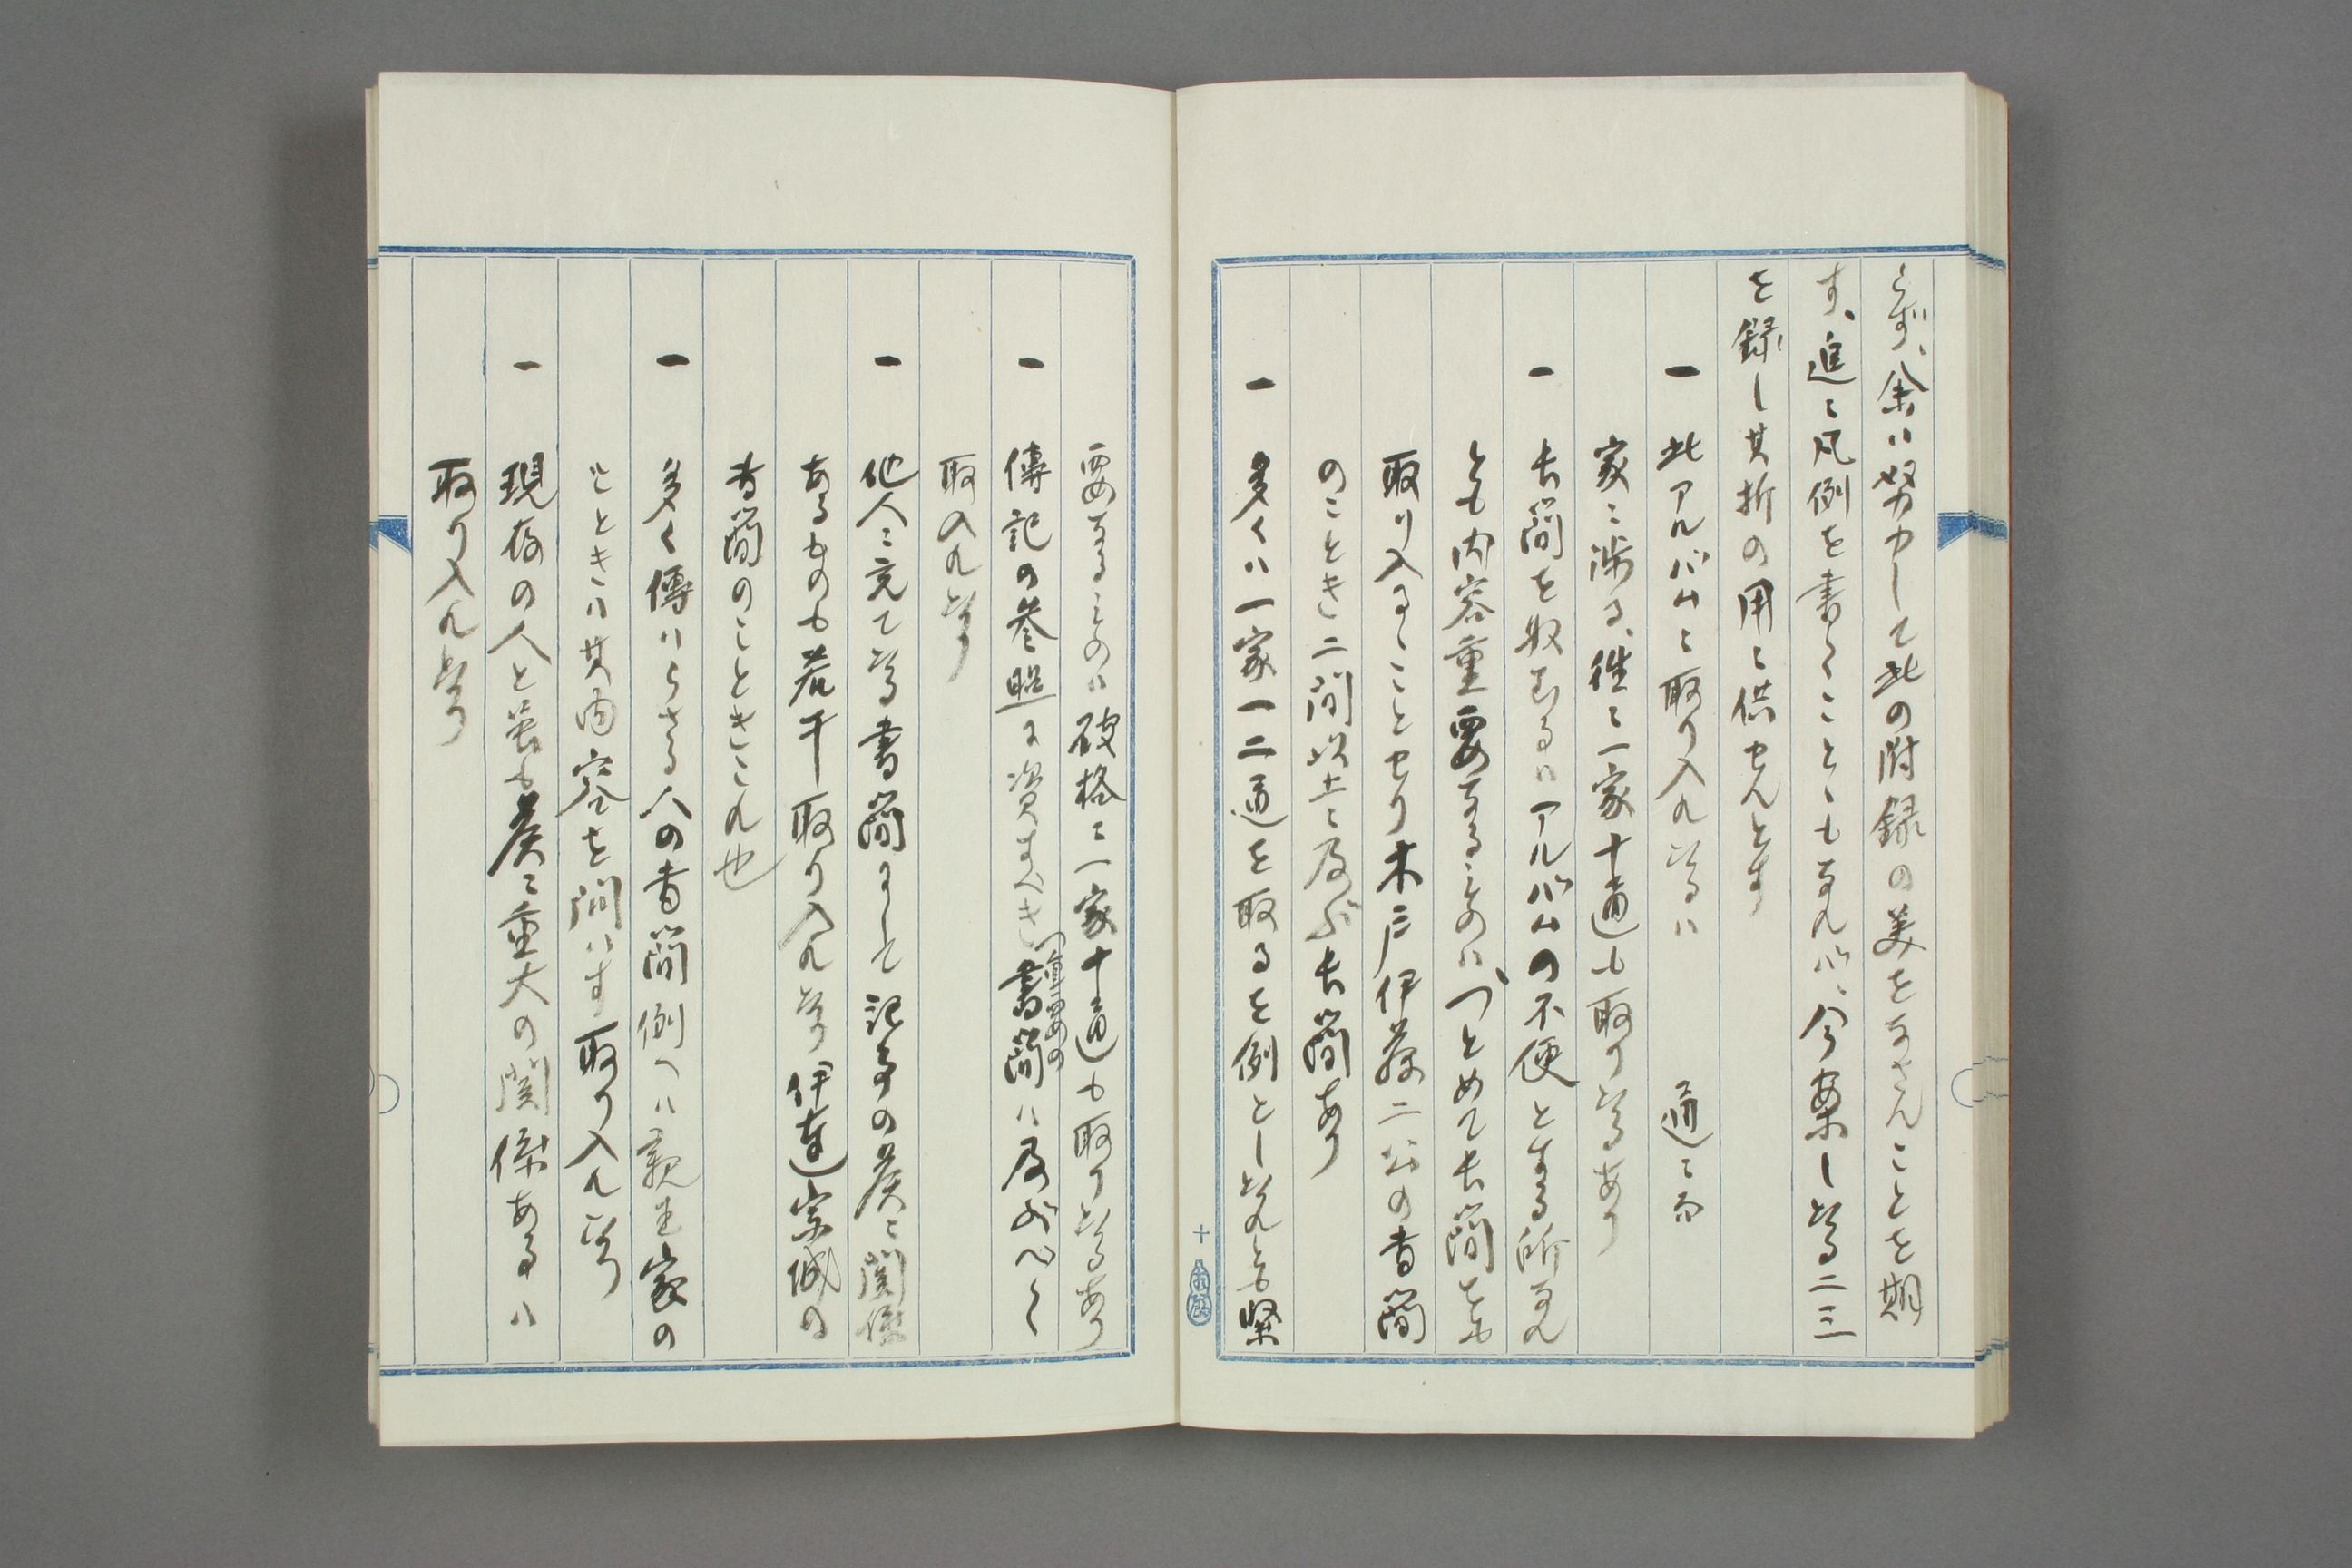 らず、余ハ努力して此の附録の美をなさんことを期
す、進て凡例を書くこともなれバ、今案し置る二三
を録し其折の用ニ供せんとす
一 此アルバムに取り入れ置るハ 通ニ而
家ニ渉る、往々一家十通も取り置るあり
一 長簡を収むるハアルバムの不便とする所なれ
とも内容重要なるものハ、つとめて長簡をも
取り入るゝことせり木戸伊藤二公の書簡
のごとき二間以上ニ及ぶ長簡あり
一 多くハ一家一二通を取るを例とし置れとも緊
十
要なるものハ破格ニ一家十通も取り置るあり
一 傳記の参照に資すべき(重要の)書簡ハ及ぶべく
取入れ置り
一 他人ニ宛て置る書簡にして記事の義ニ関係
あるものも若干取り入れ置り 伊達宗城の
書簡のごときこれ也
一 多く傳ハらざる人の書簡例へハ親王家の
ごときハ其内容を問ハず取り入れ置り
一 現存の人と雖も義ニ重大の関係あるハ
取り入れ置り